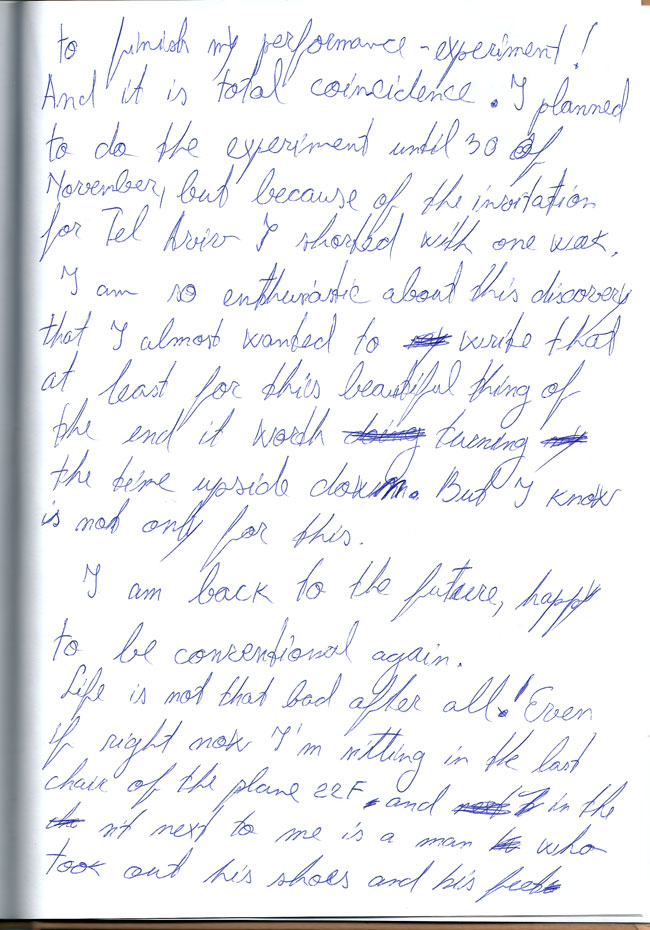 to finish my performance-experiment!
And it is total coincidence. I planned
to do the experiment until 30 of
November, but because of the invitation
for Tel Aviv I shorted with one week.
I am so enthusiastic about this discovery
that I almost wanted to write that
at least for this beautiful thing of
the end it worth doing turning my
the time upside down. But I know
is not only for this.
I am back to the future, happy
to be conventional again.
Life is not that bad after all! Even
if right now I'm sitting in the last
chair of the plane 22F, and in the
sit next to me is a man who
took out his shoes and his feet